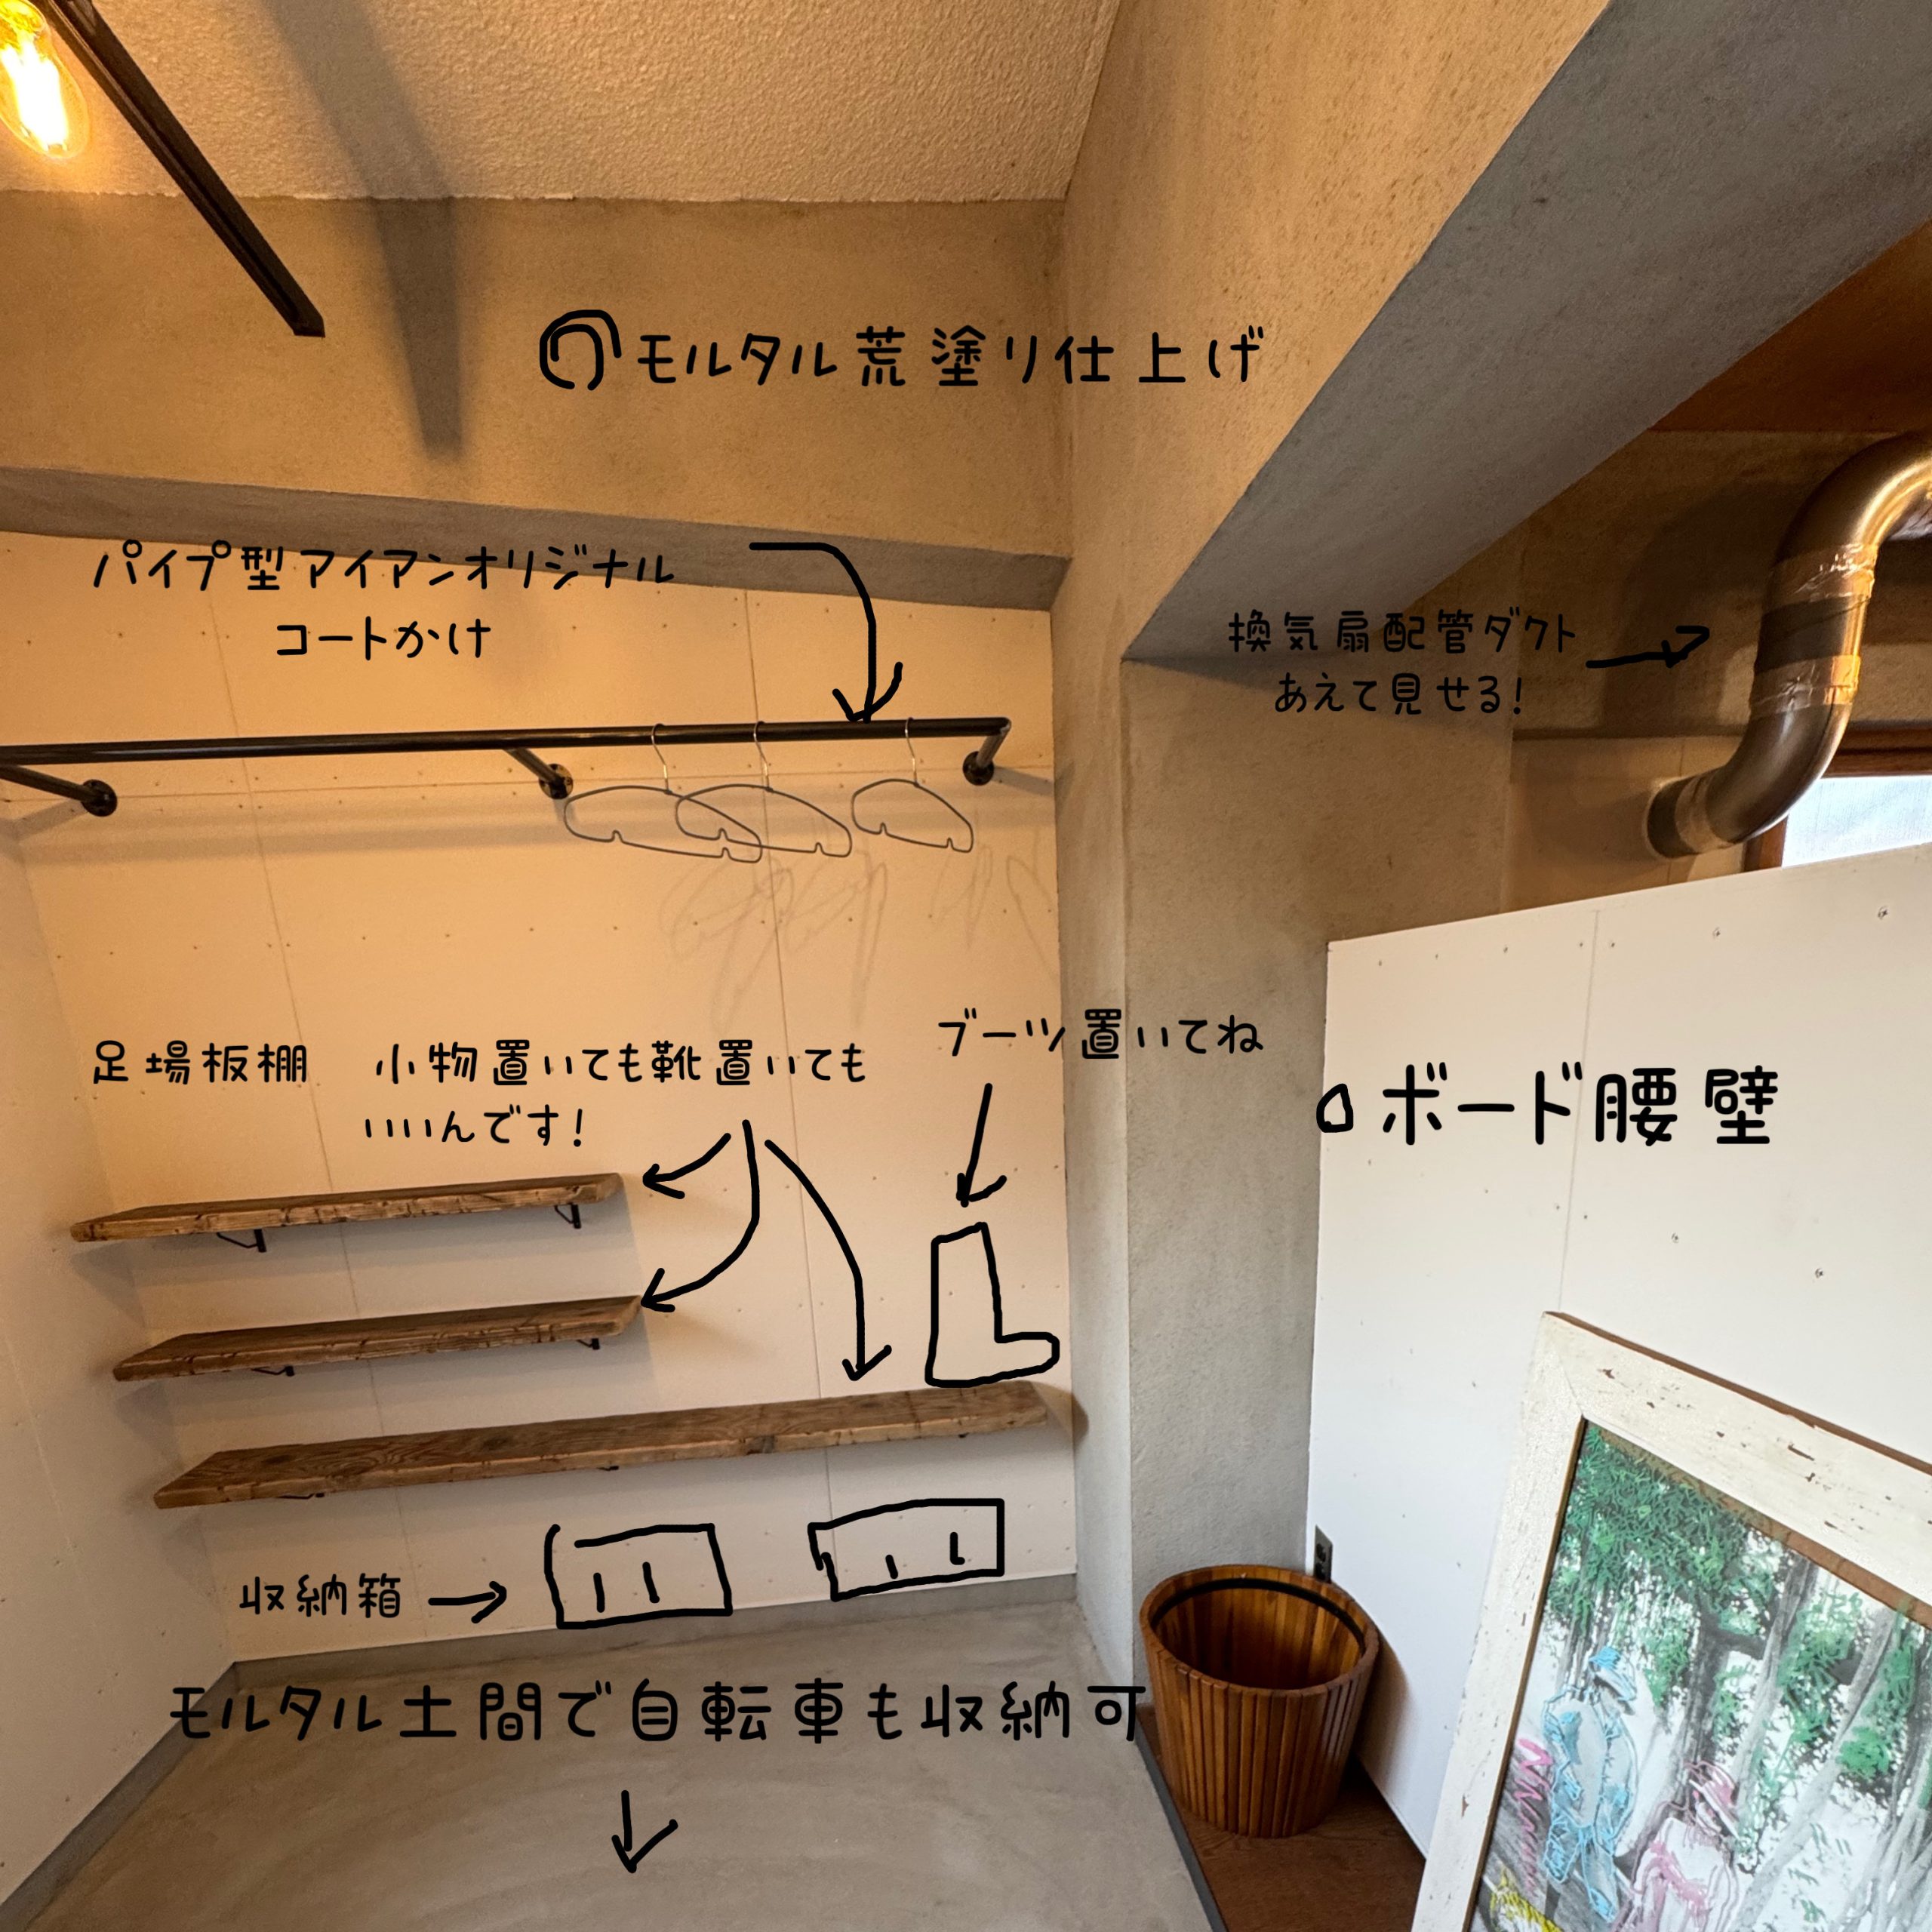 モルタル荒塗り仕上げ
パイプ型アイアンオリジナル
コートかけ
換気扇配管ダクト
あえて見せる!
足場板棚 小物置いても靴置いても
いいんです!
ブーツ置いてね
ボード腰壁
収納箱
モルタル土間で自転車も収納可